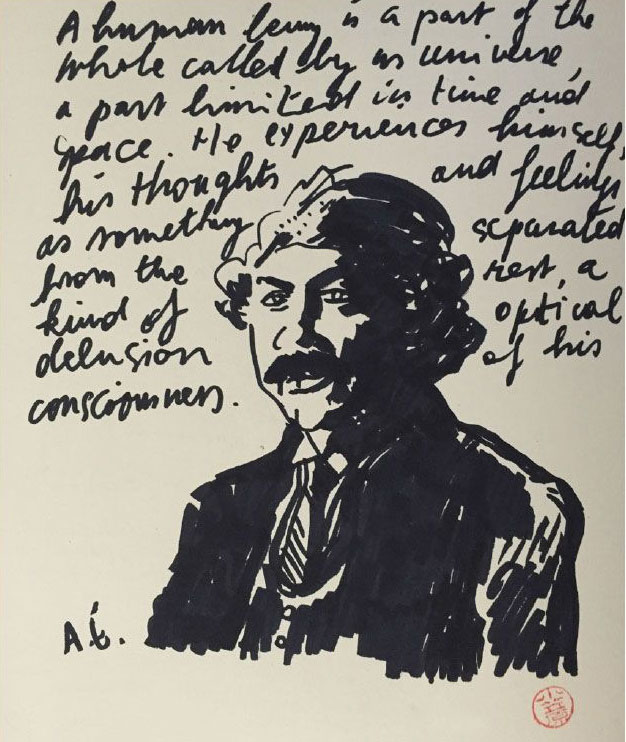 A human being is a part of the
whole called by us universe,
a part limited in time and
space. He experiences himself,
his thoughts and feelings
as something separated
from the rest, a
kind of optical
delusion of his
consciousness.
A.É.